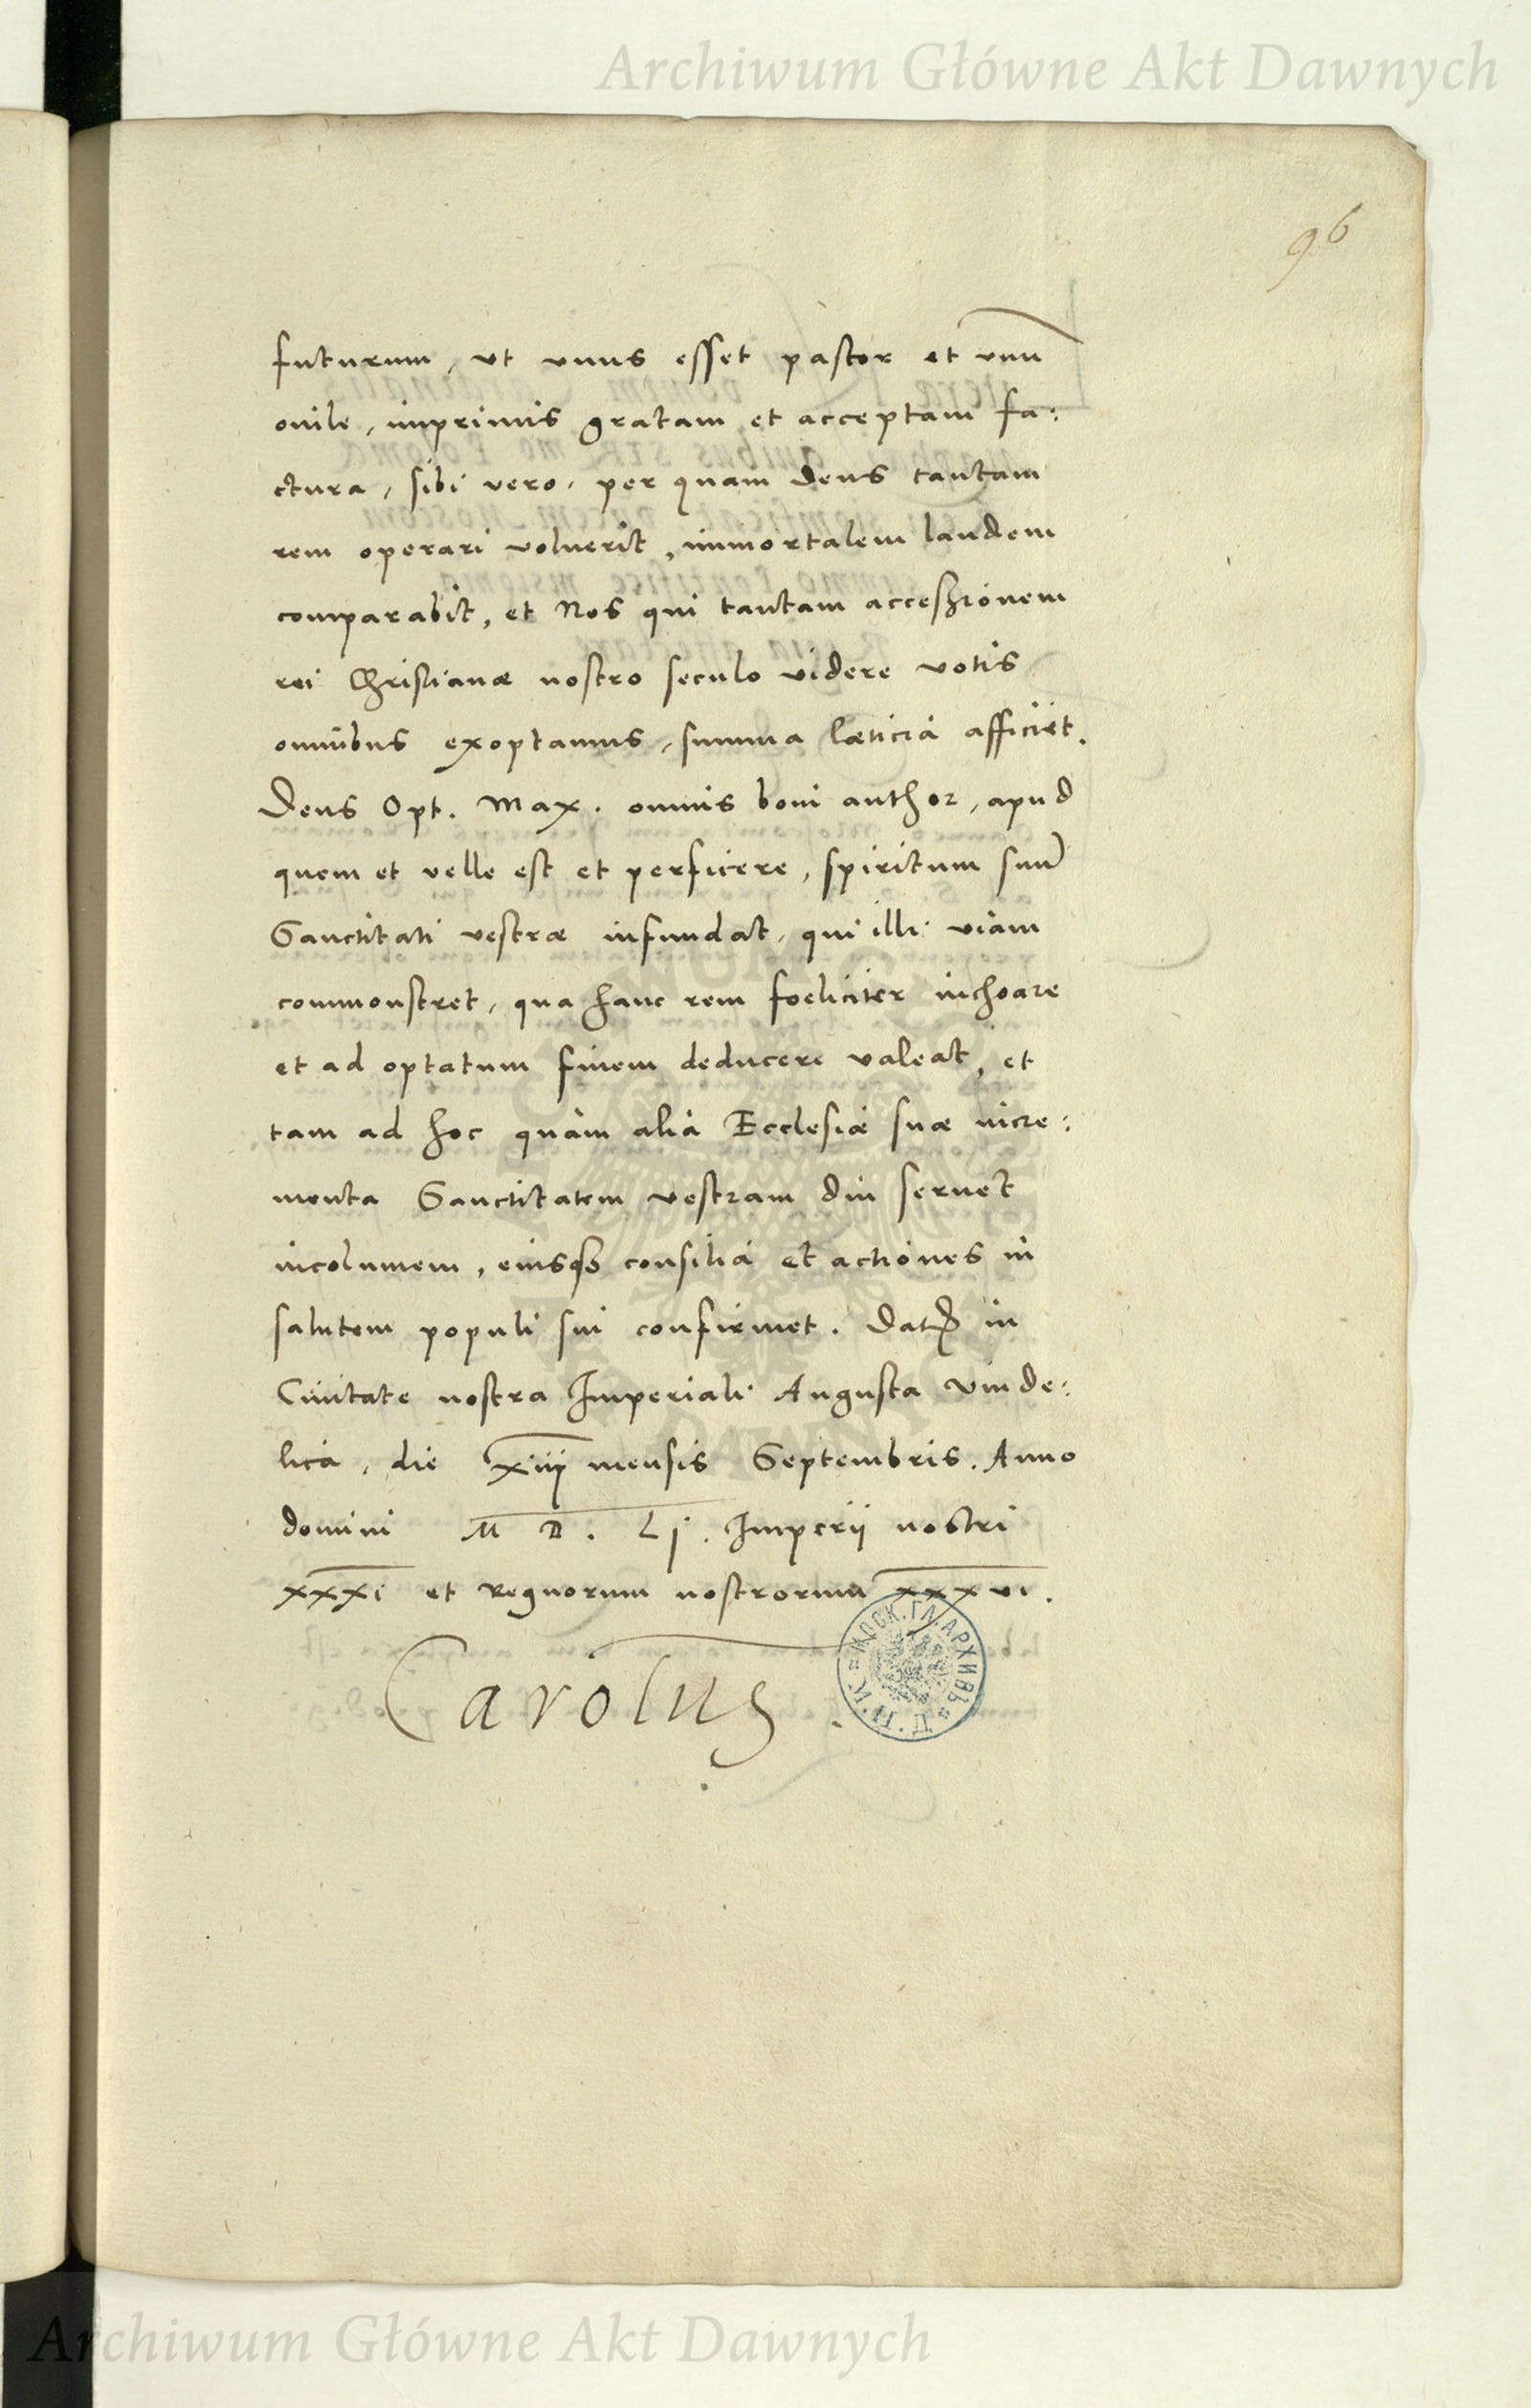 Archiwum Główne Akt Dawnych
96
futurum, ut unus esset pastor et unū
ouile, imprimis gratam et acceptam fa:
ctura, sibi vero, per quam Deus tantam
rem operari voluerit, immortalem laudem
comparabit, et Nos qui tantam accessionem
rei Christianæ nostro seculo videre votis
omnibus exoptamus, summa læticia afficiet.
Deus Opt. Max. omnis boni author, apud
quem et velle est et perficere, spiritum suū
Sanctitati vestræ infundat, qui illi viam
commonstret, qua hanc rem foeliciter inchoare
et ad optatum finem deducere valeat, et
tam ad hoc quàm alia Ecclesiæ suæ incre:
menta Sanctitatem vestram diu seruet
incolumem, eiusqꝫ consilia et actiones in
salutem populi sui confirmet. Datꝭ in
Ciuitate nostra Imperiali Augusta Vinde:
lica, die xiiij mensis Septembris. Anno
domini M D. Lj. Imperii nostri
xxxi et Regnorum nostrorum xxxvi.
Carolus
МОСК. ГЛ. АРХИВЪ М. И. Д.
Archiwum Główne Akt Dawnych